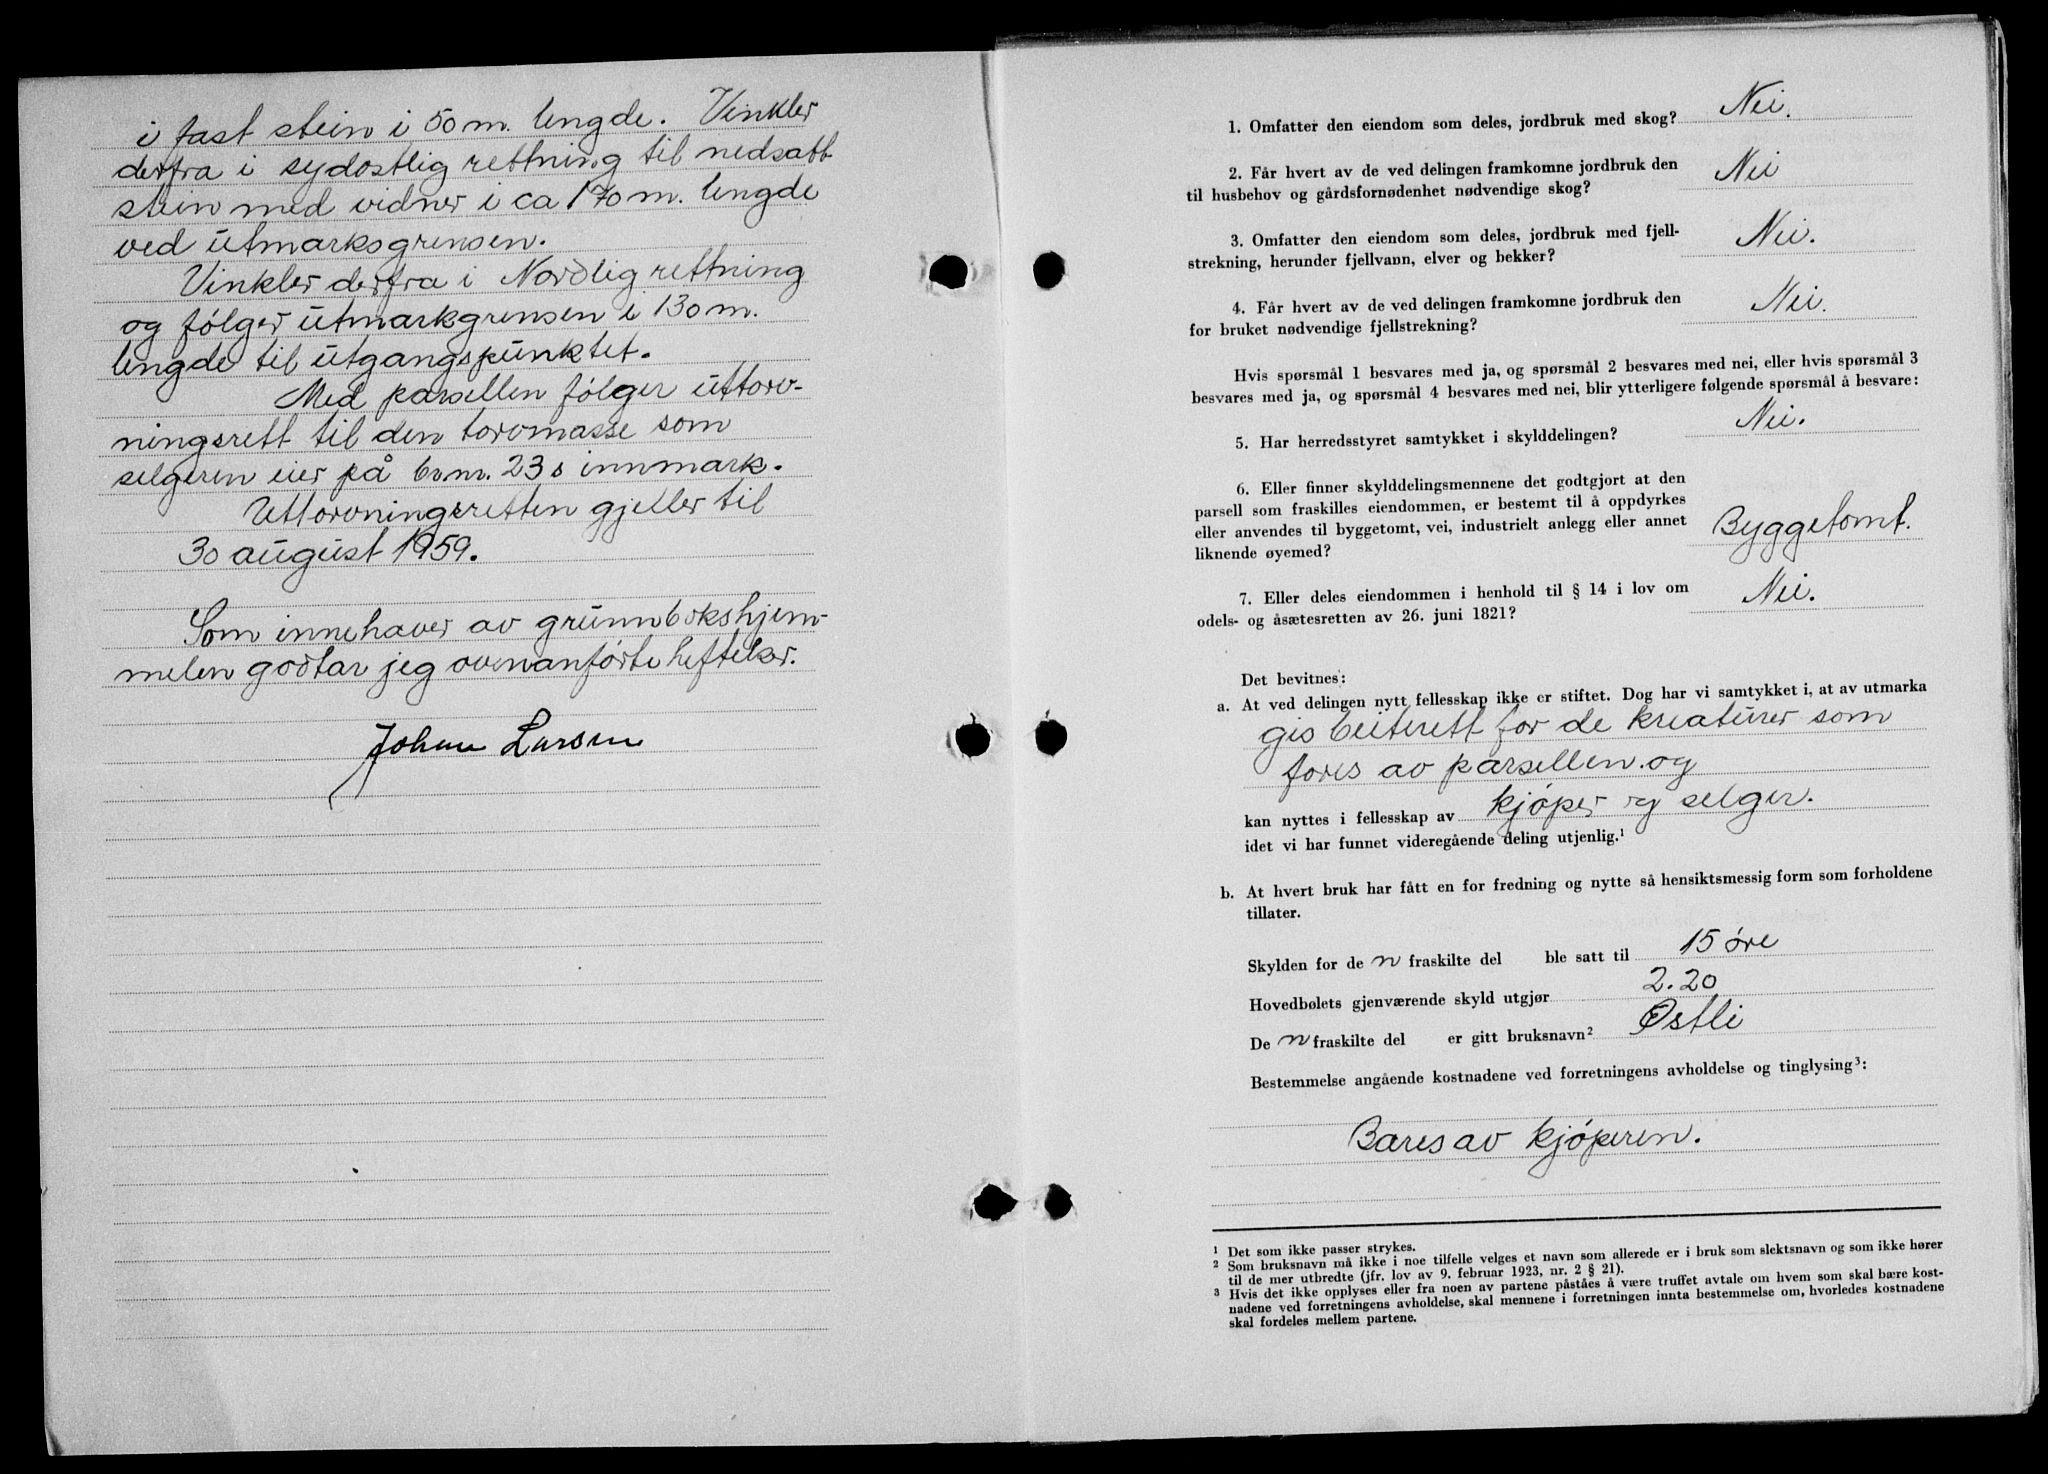 i fast stein i 50 m. lengde. Vinkler
derfra i sydostlig rettning til nedsatt
stein med vidner i ca 170 m. lengde
ved utmarksgrensen.
Vinkler derfra i Nordlig rettning
og følger utmarkgrensen i 130 m.
lengde til utgangspunktet.
Med parsellen følger uttorv-
ningsrett til den torvmasse som
selgeren eier på bnr. 23s innmark.
Uttorvningsretten gjeller til
30 august 1959.
Som innehaver av grunnbokshjem-
melen godtar jeg ovenanførte heftelser.
Johan Larsen
1. Omfatter den eiendom som deles, jordbruk med skog? Nei.
2. Får hvert av de ved delingen framkomne jordbruk den
til husbehov og gårdsfornødenhet nødvendige skog? Nei
3. Omfatter den eiendom som deles, jordbruk med fjell-
strekning, herunder fjellvann, elver og bekker? Nei.
4. Får hvert av de ved delingen framkomne jordbruk den
for bruket nødvendige fjellstrekning? Nei.
Hvis spørsmål 1 besvares med ja, og spørsmål 2 besvares med nei, eller hvis spørsmål 3
besvares med ja, og spørsmål 4 besvares med nei, blir ytterligere følgende spørsmål å besvare:
5. Har herredsstyret samtykket i skylddelingen? Nei.
6. Eller finner skylddelingsmennene det godtgjort at den
parsell som fraskilles eiendommen, er bestemt til å oppdyrkes
eller anvendes til byggetomt, vei, industrielt anlegg eller annet
liknende øyemed? Byggetomt.
7. Eller deles eiendommen i henhold til § 14 i lov om
odels- og åsætesretten av 26. juni 1821? Nei.
Det bevitnes:
a. At ved delingen nytt fellesskap ikke er stiftet. Dog har vi samtykket i, at av utmarka
gis beiterett for de kreaturer som
fores av parsellen og
kan nyttes i fellesskap av kjøper og selger.
idet vi har funnet videregående deling utjenlig.¹
b. At hvert bruk har fått en for fredning og nytte så hensiktsmessig form som forholdene
tillater.
Skylden for de n fraskilte del ble satt til 15 øre
Hovedbølets gjenværende skyld utgjør 2.20
De n fraskilte del er gitt bruksnavn² Østli
Bestemmelse angående kostnadene ved forretningens avholdelse og tinglysing³:
Bæres av kjøperen.
¹ Det som ikke passer strykes.
² Som bruksnavn må ikke i noe tilfelle velges et navn som allerede er i bruk som slektsnavn og som ikke hører
til de mer utbredte (jfr. lov av 9. februar 1923, nr. 2 § 21).
³ Hvis det ikke opplyses eller fra noen av partene påståes å være truffet avtale om hvem som skal bære kost-
nadene ved forretningens avholdelse, skal mennene i forretningen innta bestemmelse om, hvorledes kostnadene
skal fordeles mellem partene.